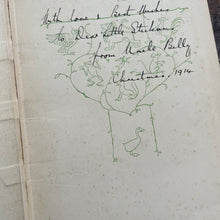 With Love & Best Wishes
to Dear Little
from Uncle Billy
Christmas 1914.